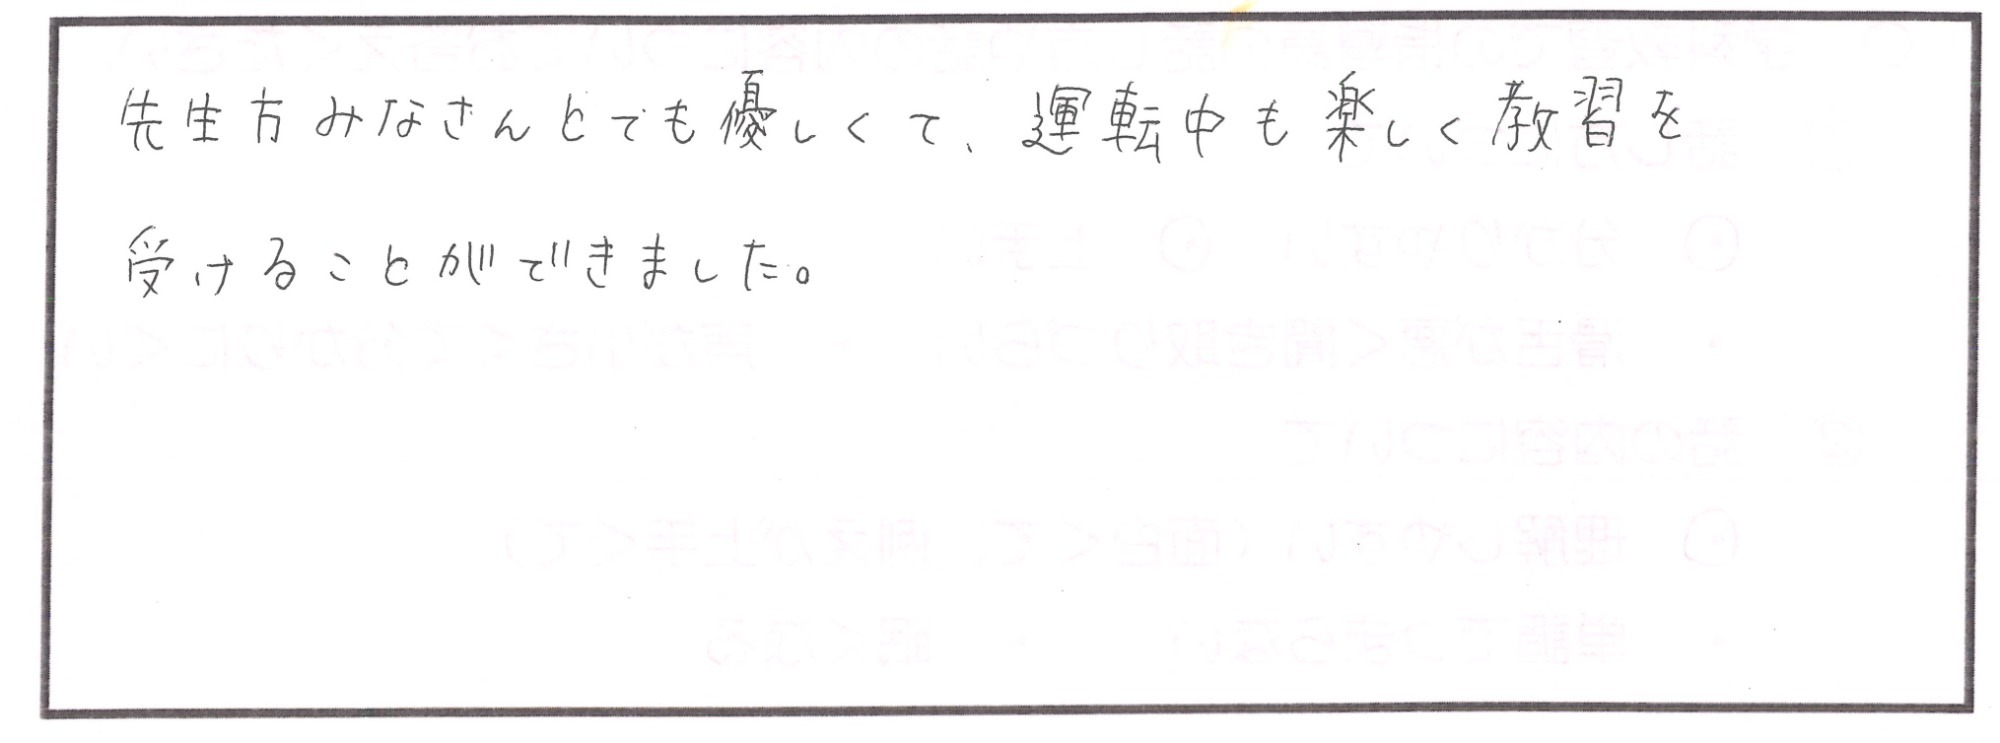 先生方みなさんとても優しくて、運転中も楽しく教習を
受けることができました。